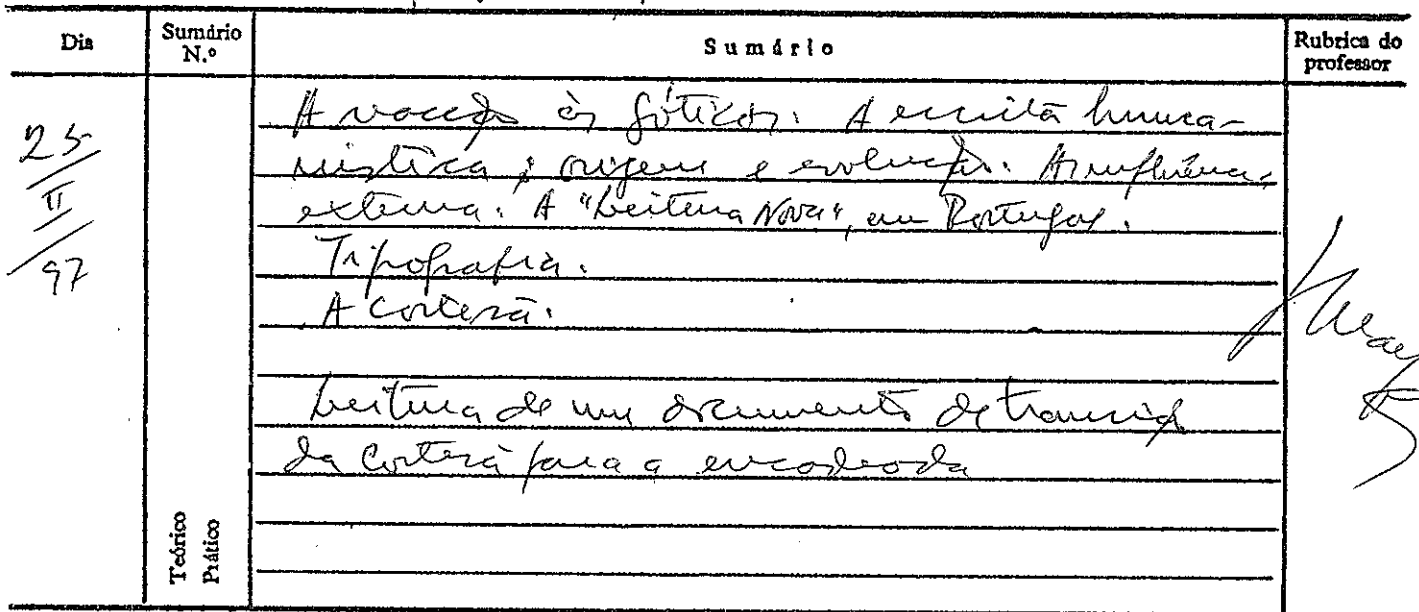 Dia
Sumário N.º
Sumário
Rubrica do professor
25 / II / 97
A reacção às góticas. A escrita huma-
nística; origem e evolução. As influências
externa. A "Leitura Nova", em Portugal.
Tipografia.
A Cortesã.
Leitura de um documento de transição
da Cortesã para a encadeada
Teórico
Prático